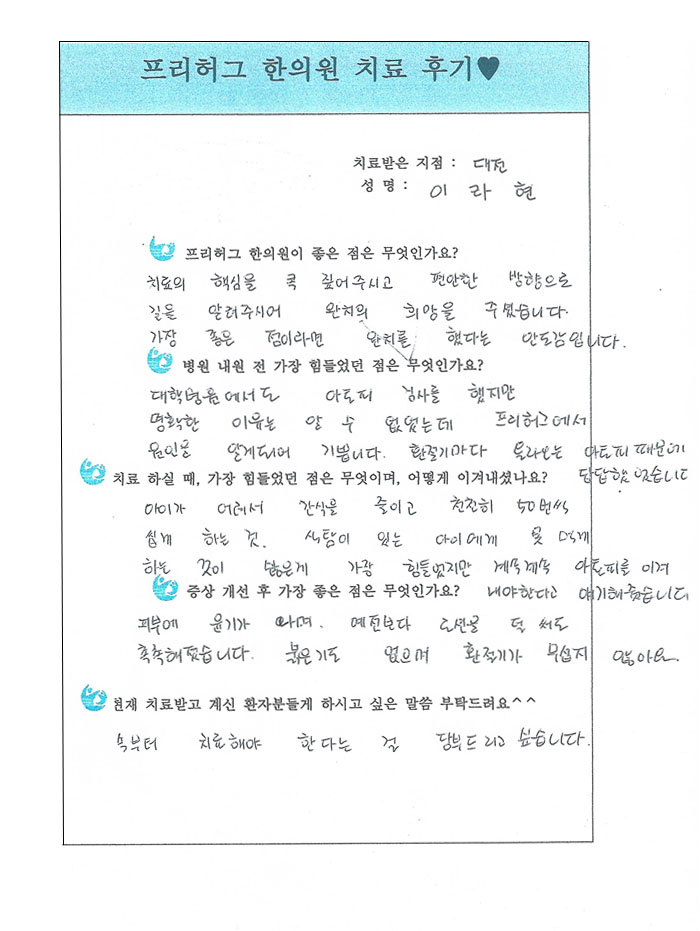 프리허그 한의원 치료 후기♥
치료받은 지점 : 대전
성 명 : 이 라 현
프리허그 한의원이 좋은 점은 무엇인가요?
치료의 핵심을 콕 짚어주시고 편안한 방향으로
길을 알려주시어 완치의 희망을 주셨습니다.
가장 좋은 점이라면 완치를 했다는 안도감입니다.
병원 내원 전 가장 힘들었던 점은 무엇인가요?
대학병원에서도 아토피 검사를 했지만
명확한 이유는 알 수 없었는데 프리허그에서
원인을 알게되어 기쁩니다. 환절기마다 올라오는 아토피 때문에
치료 하실 때, 가장 힘들었던 점은 무엇이며, 어떻게 이겨내셨나요? 답답했었습니다
아이가 어려서 간식을 줄이고 천천히 50번씩
씹게 하는 것. 식탐이 있는 아이에게 못 먹게
하는 것이 싫은게 가장 힘들었지만 계속계속 아토피를 이겨
증상 개선 후 가장 좋은 점은 무엇인가요? 내야한다고 얘기해줬습니다
피부에 윤기가 나며. 예전보다 로션을 덜 써도
촉촉해졌습니다. 붉은기도 없으며 환절기가 무섭지 않아요.
현재 치료받고 계신 환자분들게 하시고 싶은 말씀 부탁드려요^^
속부터 치료해야 한다는 걸 당부드리고 싶습니다.